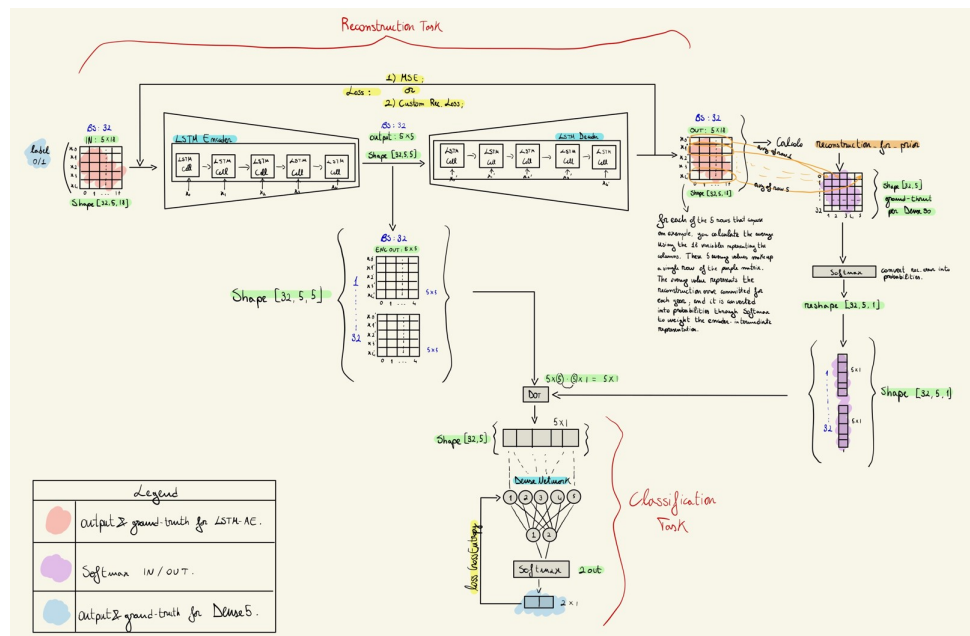 Reconstruction Task
1) MSE;
Loss: or
2) Custom Rec. Loss;
label
0/1
BS: 32
IN: 5x18
x0
x1
x2
x3
xi
0 1 ... 17
Shape [32,5,18]
LSTM Encoder
LSTM Cell
LSTM Cell
LSTM Cell
LSTM Cell
LSTM Cell
BS: 32
output: 5x5
Shape [32,5,5]
LSTM Decoder
LSTM Cell
LSTM Cell
LSTM Cell
LSTM Cell
LSTM Cell
BS: 32
OUT: 5x18
0 1 ... 17
Shape [32,5,18]
Calcolo
reconstruction-for-prior
avg of row 1
avg of row 5
0
1
32
1 2 3 4 5
Shape [32,5]
ground-thrut
per Dense
for each of the 5 rows that compose
an example, you calculate the average
using the 18 variables representing the
columns. These 5 average values make up
a single row of the purple matrix.
The average value represents the
reconstruction error committed for
each year, and it is converted
into probabilities through Softmax
to weight the encoder-intermediate
representation.
Softmax
convert rec. error into
probabilities.
reshape [32,5,1]
BS: 32
ENC OUT: 5x5
Shape [32, 5, 5]
1
32
x0
x1
x2
x3
xi
5x5
x0
x1
x2
x3
xi
0 1 ... 4
5x5
1
32
5x1
5x1
Shape [32, 5, 1]
5x(5) · (5)x1 = 5x1
DOT
5x1
Shape [32,5]
Dense Network
1 2 3 4 5
1 2
Loss CrossEntropy
Softmax
2 out
2x1
Classification
Task
Legend
output & ground-truth for LSTM-AE.
Softmax IN/OUT.
output & ground-truth for Dense5.